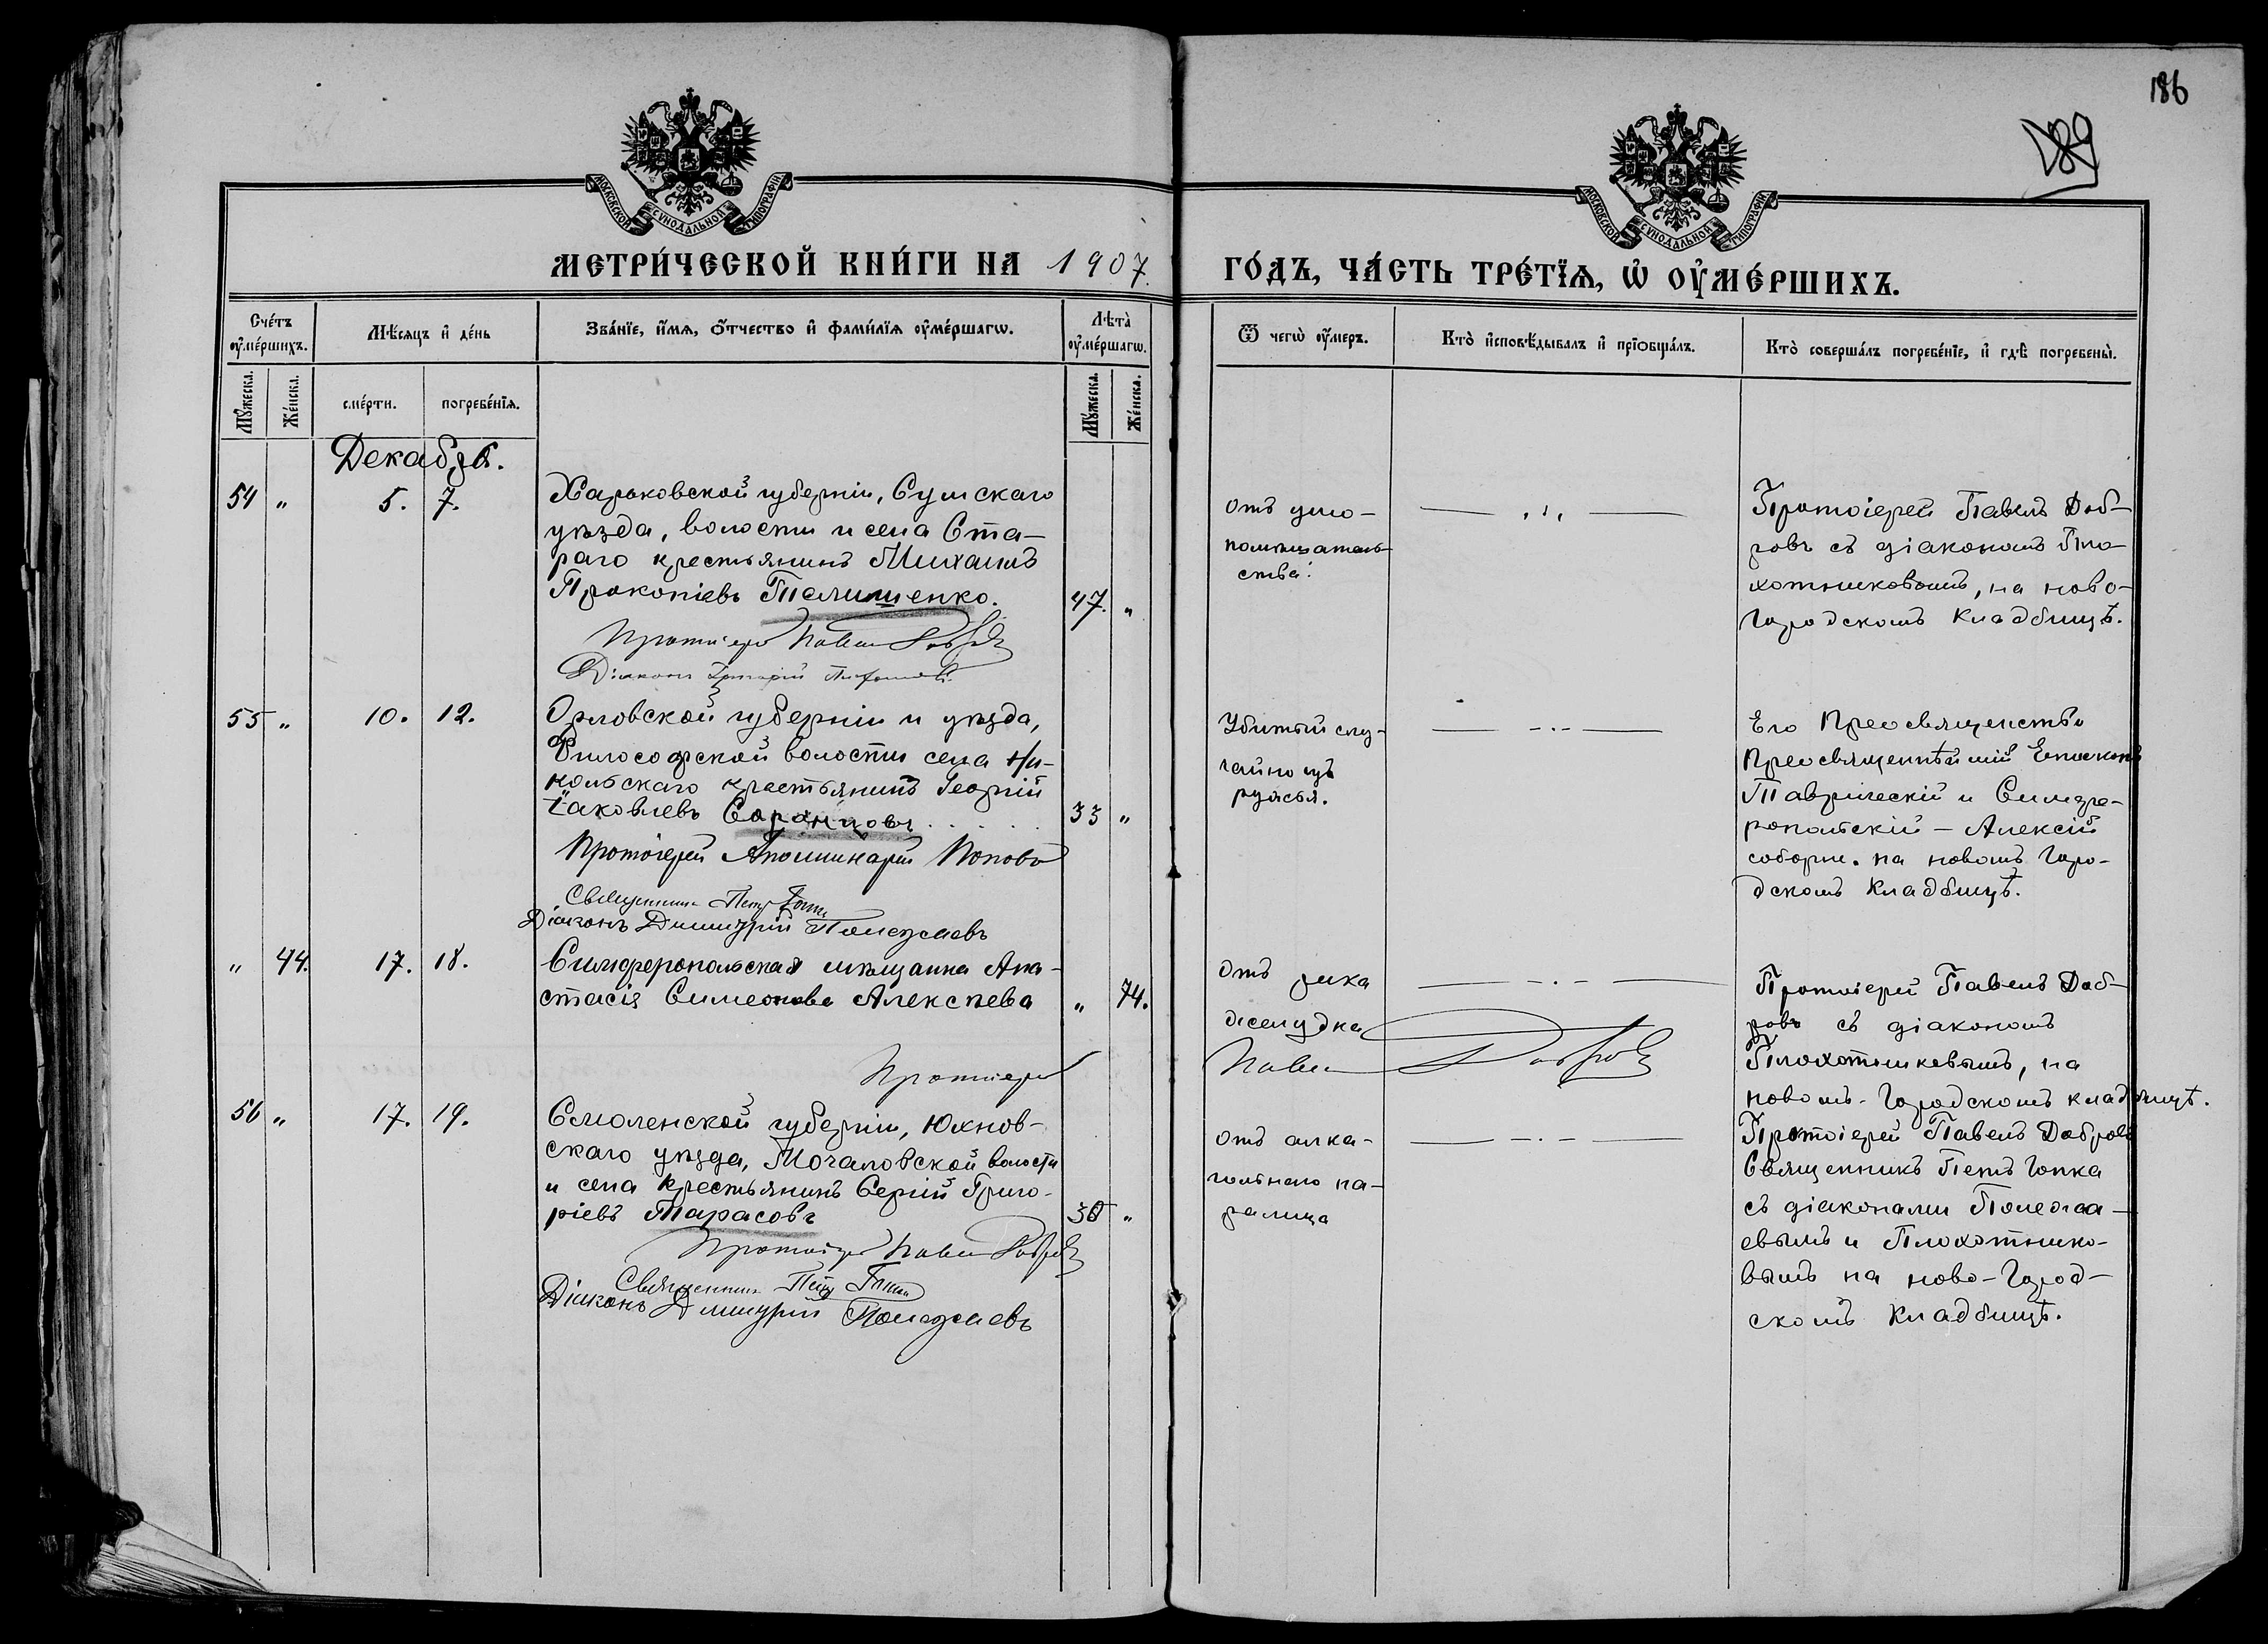 186
189
МОСКОВСКОЙ СѴНОДАЛЬНОЙ ТИПОГРАФІИ.
МОСКОВСКОЙ СѴНОДАЛЬНОЙ ТИПОГРАФІИ.
МЕТРИ́ЧЕСКОЙ КНИ́ГИ НА 1907.
ГО́ДЪ, ЧА́СТЬ ТРЕ́ТЇѦ, Ѽ ОУ҆МЕ́РШИХЪ.
Сче́тъ оу҆ме́ршихъ.
Мѣ́сяцъ и҆ де́нь
Зва́нїе, и҆́мѧ, ѻ҆́тчество и҆ фами́лїѧ оу҆ме́ршагѡ.
Лѣ́та оу҆ме́ршагѡ.
Ѿ чегѡ̀ оу҆́меръ.
Кто̀ и҆сповѣ́дывалъ и҆ прїѡбща́лъ.
Кто̀ соверша́лъ погребе́нїе, и҆ гдѣ̀ погребены̀.
Мꙋ́жеска.
Же́нска.
сме́рти.
погребе́нїѧ.
Мꙋ́жеска.
Же́нска.
Декабрь.
54 " 5. 7.
Харьковской губерніи, Сумскаго
уѣзда, волости и села Ста-
раго крестьянинъ Михаилъ
Прокопіевъ Талищенко. 47. "
Протоіерей Павелъ Добровъ
Діаконъ Григорій
отъ умо-
помѣшатель-
ства.
Протоіерей Павелъ Доб-
ровъ съ діакономъ Пло-
хотниковымъ, на ново-
городскомъ кладбищѣ.
55 " 10. 12.
Орловской губерніи и уѣзда,
Философской волости села Ни-
кольскаго крестьянинъ Георгій
Іаковлевъ Саранцовъ 33 "
Протоіерей Аполлинарій Поповъ
Священникъ Петръ Гопка
Діаконъ Димитрій Полежаевъ
Убитый слу-
чайно изъ
ружья.
Его Преосвященство
Преосвященнѣйшій Епископъ
Таврическій и Симфе-
ропольскій - Алексій
соборне. на новомъ горо-
дскомъ кладбищѣ.
" 44. 17. 18.
Симферопольская мѣщанка Ана-
стасія Симеонова Алексѣева " 74.
Протоіерей Павелъ Добровъ
отъ рака
желудка
Протоіерей Павелъ Доб-
ровъ съ діакономъ
Плохотниковымъ, на
новомъ-городскомъ кладбищѣ.
56 " 17. 19.
Смоленской губерніи, Юхнов-
скаго уѣзда, Мочаловской волости
и села крестьянинъ Сергій Григо-
ріевъ Тарасовъ 38 "
Протоіерей Павелъ Добровъ
Священникъ Петръ Гопка
Діаконъ Димитрій Полежаевъ
отъ алка-
гольнаго па-
ралича
Протоіерей Павелъ Добровъ
Священникъ Петъ Гопка
съ діаконами Полежа-
евымъ и Плохотнико-
вымъ на ново-город-
скомъ кладбищѣ.